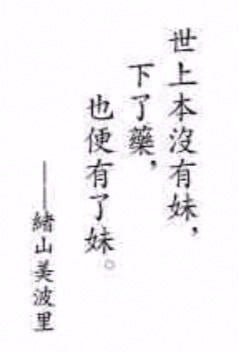 世上本沒有妹，
下了藥，
也便有了妹。
——緒山美波里